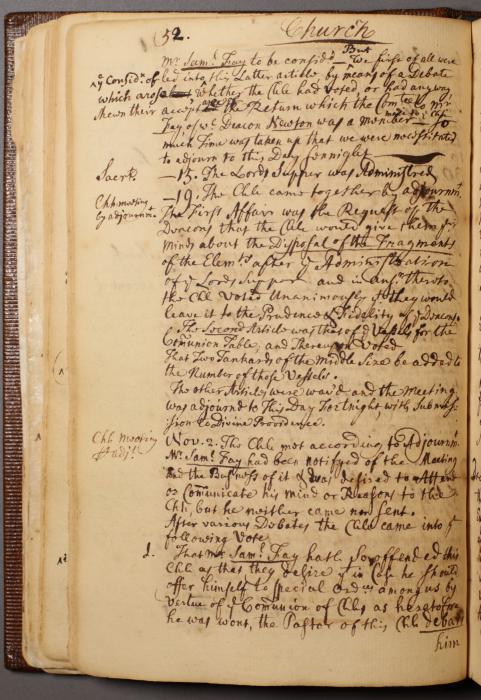 52. Church
But
Mr. Saml. Fay to be considd. — We first of all were
ye Considn. of led into this Latter article by means of a Debate
which arose whether the Chh had voted, or had any way
shewn their acceptance of the Return which the Comtee to Mr
Fay of wc. Deacon Newton was a member made to ye Chh. So
much Time was taken up that we were necessitated
to adjourn to this Day sennight
Sacrt. — 15. The Lords Supper was Administred
Chh meeting — 19. The Chh came together by adjournmt.
by adjournmt. The First Affair was the Request of the
Deacons that the Chh would give them yr
Minds about the Disposal of the Fragments
of the Elemts. after ye Administration
of ye Lords Supper and in Ansr. thereto
the Chh Voted Unanimously yt they would
leave it to the Prudence & Fidelity of ye Deacons.
The Second Article was that of ye Vessels for the
Comunion Table, and Thereupon Voted
That Two Tankards of the Middle Size be added to
the Number of those Vessels.
The other Articles were wav'd and the Meeting
was adjournd to This Day Fortnight with Submis-
sion to Divine Providence.
Chh Meeting Nov. 2. The Chh met according to Adjournmt.
adjt. Mr. Saml. Fay had been notifyed of the Meeting
and the Business of it & was desired to Attend
or Comunicate his mind or Reasons to the
Chh, but he neither came nor sent.
After various Debates the Chh came into ye
following Vote
1. That Mr Saml. Fay hath so offended this
Chh as that they desire yt in Case he should
offer himself to special Ordces among us by
vertue of ye Comunion of Chhs as heretofore
he was wont, the Pastor of this Chh debar
him